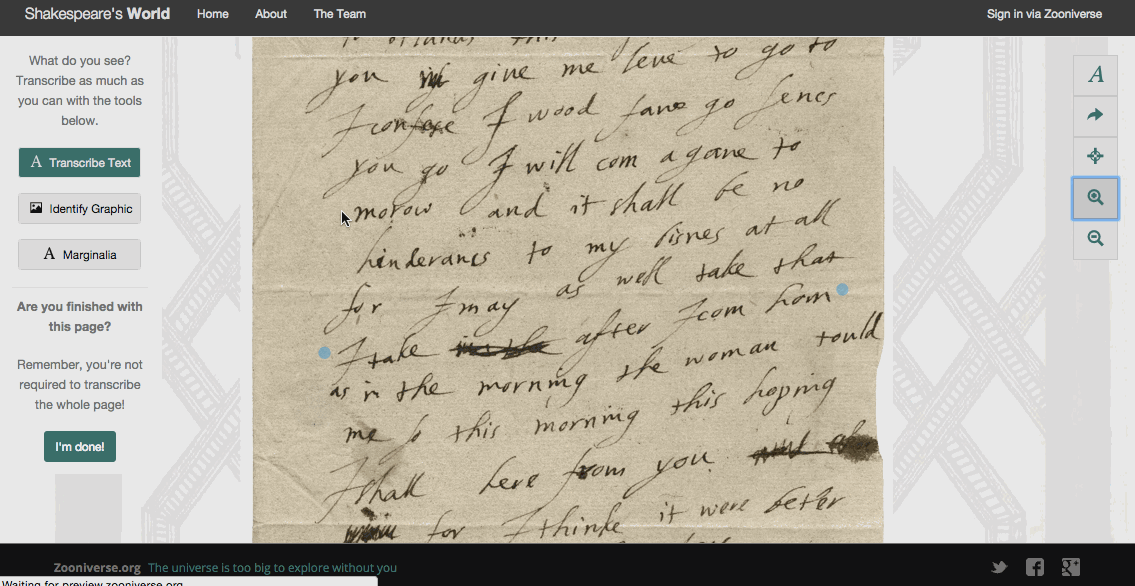 Shakespeare's World
Home
About
The Team
Sign in via Zooniverse
What do you see?
Transcribe as much as
you can with the tools
below.
A Transcribe Text
Identify Graphic
A Marginalia
Are you finished with
this page?
Remember, you're not
required to transcribe
the whole page!
I'm done!
this
you give me leve to go to
I confese I wood fane go sencs
you go I will com agane to
morow and it shall be no
hinderancs to my bisnes at all
for I may as well take that
I take after I com hom
as in the morning the woman tould
me so this morning this hoping
I shall here from you
for I thinke it were beter
A
Zooniverse.org The universe is too big to explore without you
Waiting for preview.zooniverse.org